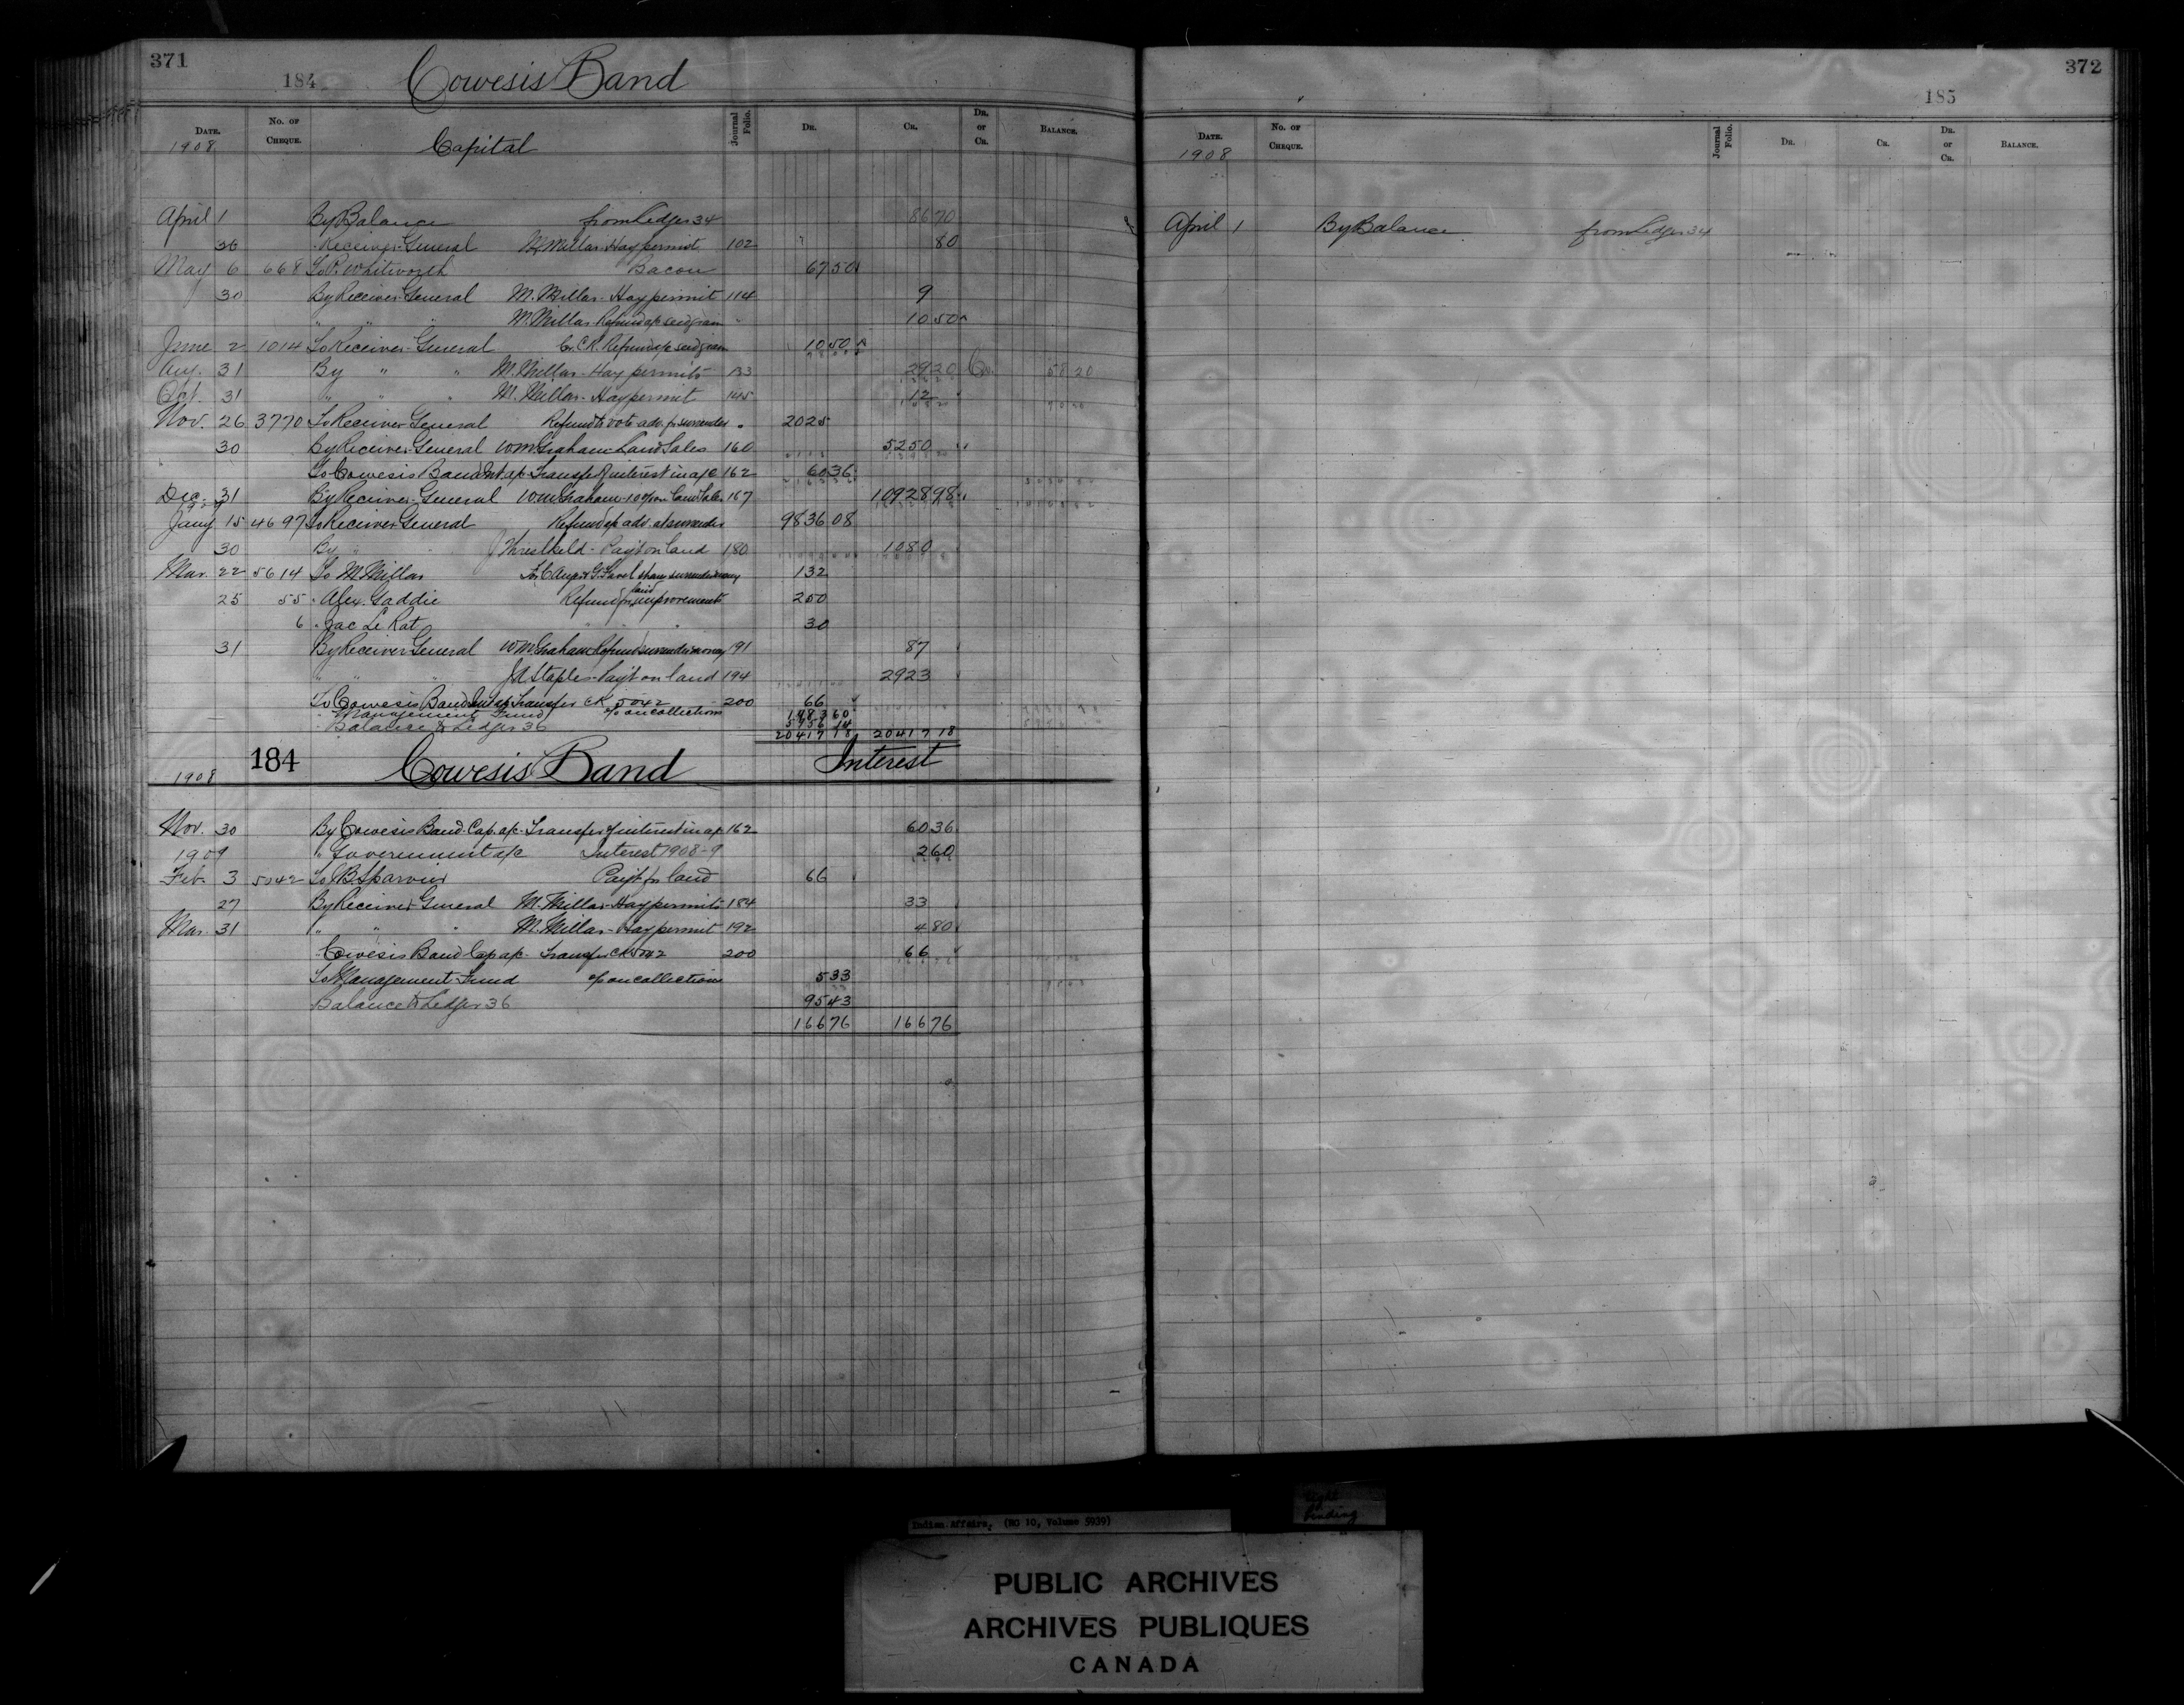 371
184 Cowesis Band
Date. No. of Cheque. Journal Folio. Dr. Cr. Dr. or Cr. Balance.
1908 Capital
April 1 By Balance from Ledger 34 86 70
30 " Receiver General M. Millar - Hay permit 102 80
May 6 668 To R. Whitworth Bacon 67 50
30 By Receiver General M. Millar - Hay permit 114 9
" " " M. Millar Refund a/c seed grain " 10 50
June 2 1014 To Receiver General Cr. C.R. Refund a/c seed grain 10 50
Aug. 31 By " " M. Millar - Hay permits 133 29 20 Cr. 58 20
Oct. 31 " " " M. Millar - Hay permit 145 12
Nov. 26 3770 To Receiver General Refund to vote adv. for surrender 20 25
30 By Receiver General W.M. Graham Land Sales 160 52 50
To Cowesis Band Int a/c Transfer of interest in a/c 162 60 36
Dec. 31 By Receiver General W.M. Graham 10% on Land Sales 167 10928 98
1909
Jany 15 4697 To Receiver General Refund a/c adv. at surrender 9836 08
30 By " Threslkeld - Payt on land 180 1080
Mar. 22 5614 To M. Millar share surrender money 132
25 55 " Alex. Gaddie Refund for land improvements 250
6 " Jac Le Rat " " " 30
31 By Receiver General W.M. Graham Refund surrender money 191 87
" " " J.A. Staples - Payt on land 194 2923
To Cowesis Band Int a/c Transfer CK 5042 200 66
" Management Fund % on collections 1483 60
" Balance to Ledger 36
20417 18 20417 18
1908 184 Cowesis Band Interest
Nov. 30 By Cowesis Band Cap. a/c - Transfer of interest in a/c 162 60 36
1909 " Government a/c Interest 1908-9 2 60
Feb. 3 5042 To B. Sparvier Payt for land 66
27 By Receiver General M. Millar - Hay permits 184 33
Mar. 31 " " " M. Millar - Hay permit 192 4 80
" Cowesis Band Cap a/c - Transfer CK 5042 200 66
To Management Fund % on collections 5 33
Balance to Ledger 36 95 43
166 76 166 76
372
185
Date. No. of Cheque. Journal Folio. Dr. Cr. Dr. or Cr. Balance.
1908
April 1 By Balance from Ledger 34
Indian Affairs. (RG 10, Volume 5939)
tight binding
PUBLIC ARCHIVES
ARCHIVES PUBLIQUES
CANADA